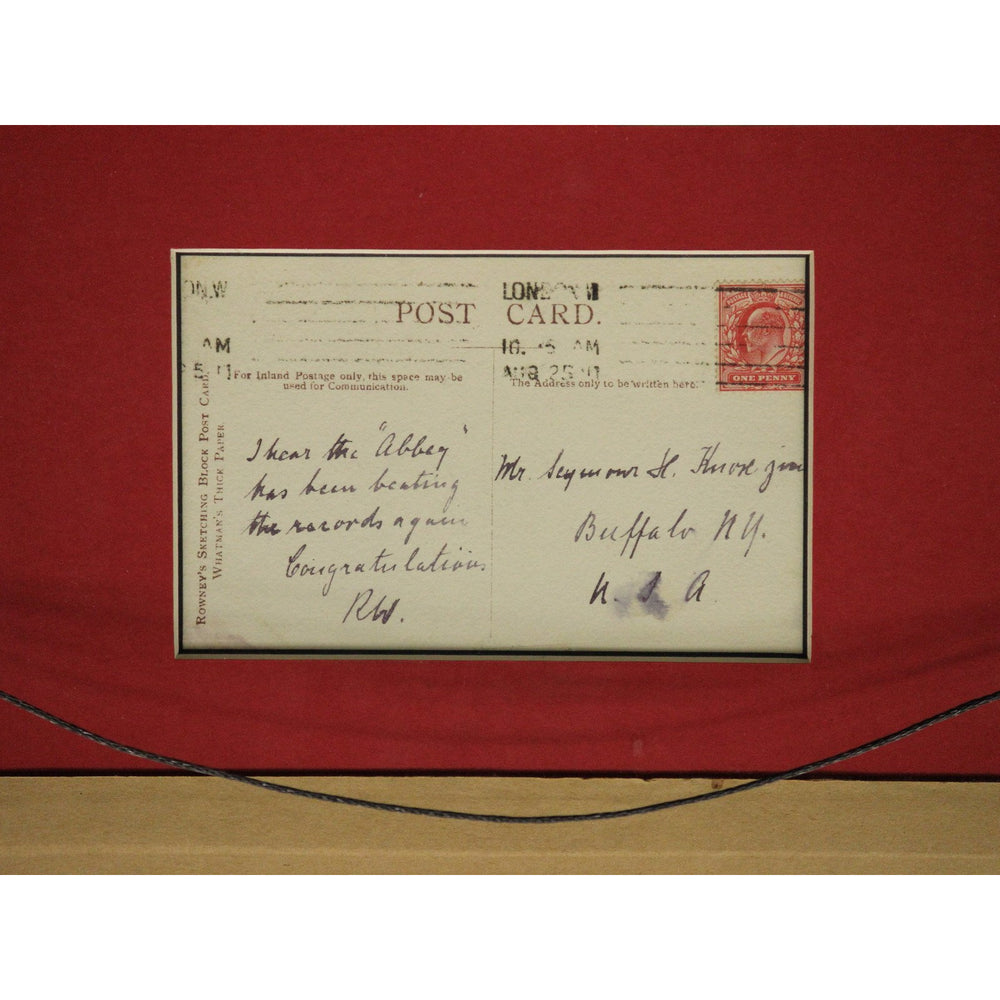 LONDON W
AM
POST CARD.
10. 15 AM
AUG 25 11
POSTAGE REVENUE
ONE PENNY
For Inland Postage only, this space may be
used for Communication.
The Address only to be written here.
ROWNEY'S SKETCHING BLOCK POST CARD.
WHATMAN'S THICK PAPER.
I hear the "Abbey"
has been beating
the records again
Congratulations
RW.
Mr. Seymour H. Knox
Buffalo NY.
U S A